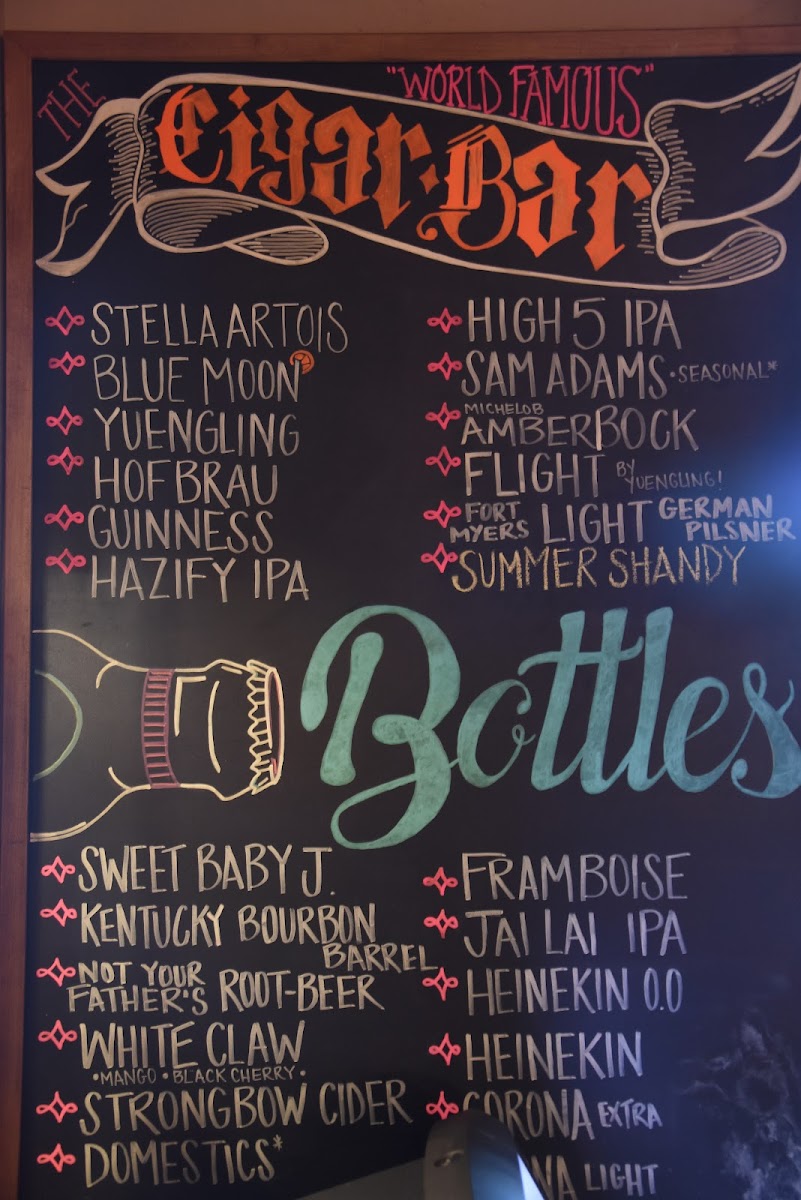 THE "WORLD FAMOUS"
Cigar·Bar
STELLA ARTOIS
BLUE MOON
YUENGLING
HOFBRAU
GUINNESS
HAZIFY IPA
HIGH 5 IPA
SAM ADAMS ·SEASONAL*
MICHELOB
AMBERBOCK
FLIGHT BY YUENGLING!
FORT MYERS LIGHT GERMAN PILSNER
SUMMER SHANDY
Bottles
SWEET BABY J.
KENTUCKY BOURBON
BARREL
NOT YOUR
FATHER'S ROOT-BEER
WHITE CLAW
·MANGO·BLACK CHERRY·
STRONGBOW CIDER
DOMESTICS*
FRAMBOISE
JAI LAI IPA
HEINEKIN 0.0
HEINEKIN
CORONA EXTRA
LIGHT